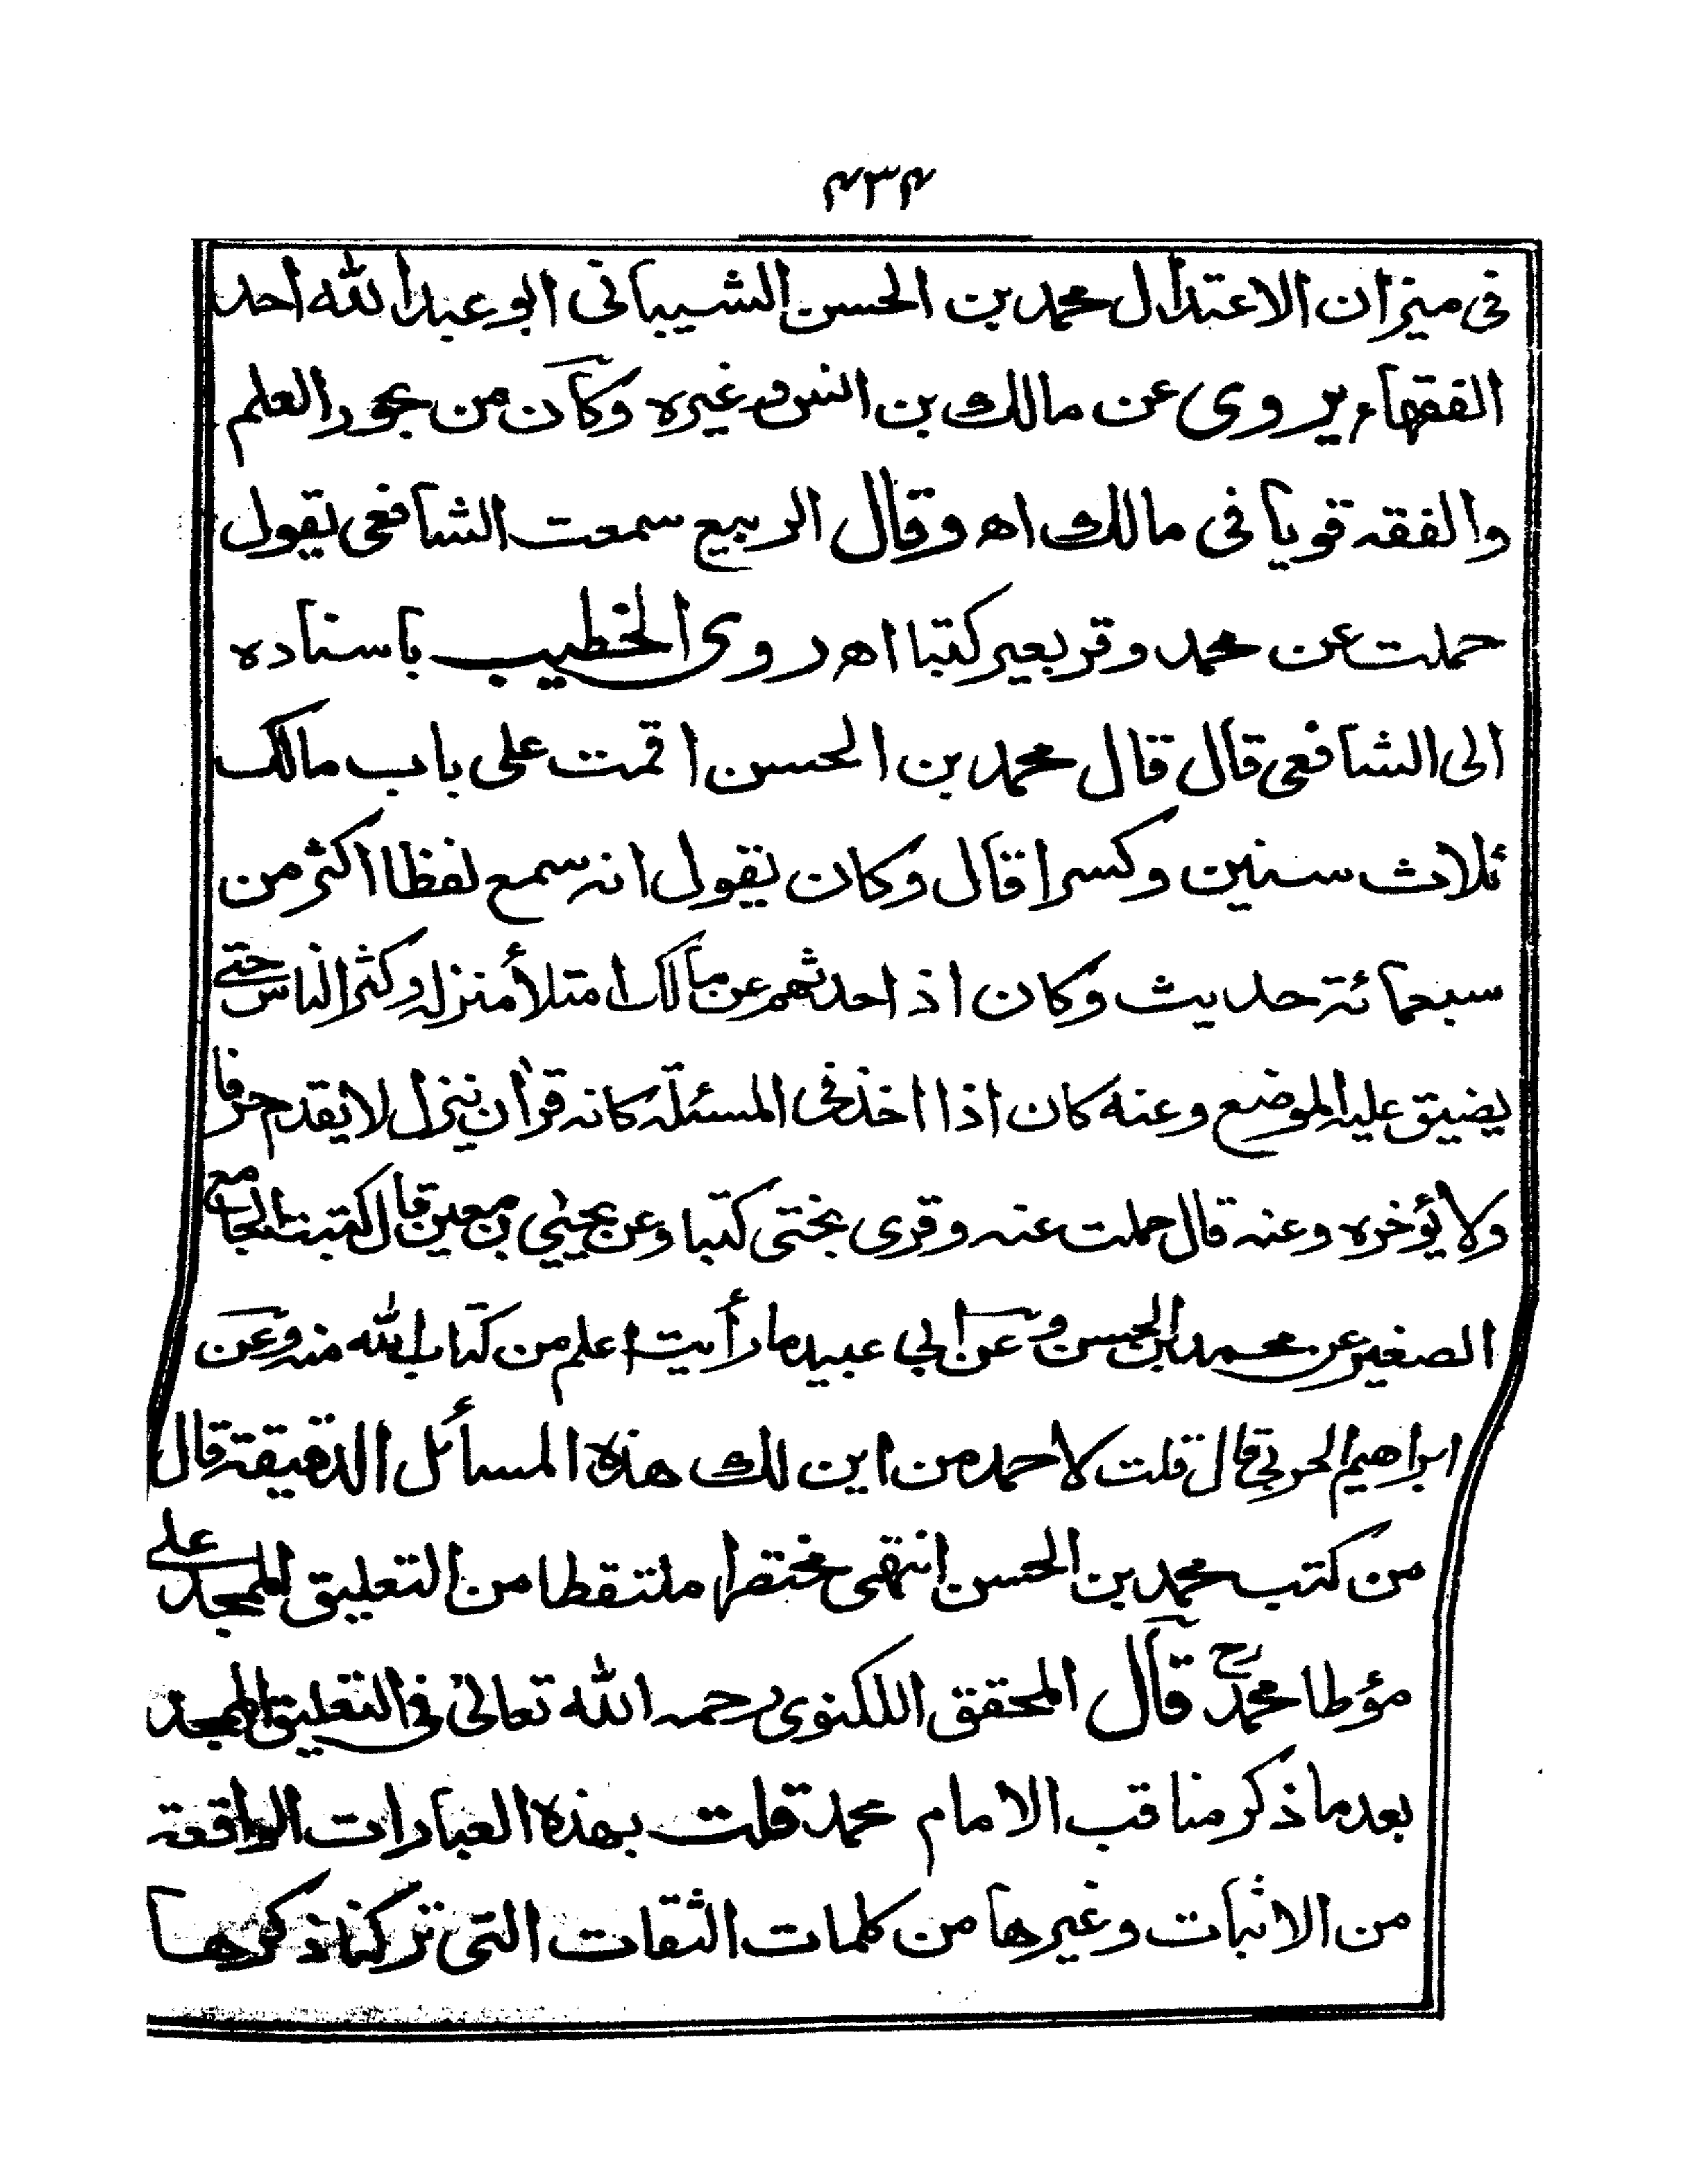 ۴۳۴
فى ميزان الاعتدال محمد بن الحسن الشيبانى ابو عبد الله احد
الفقهاء يروى عن مالك بن انس وغيره وكان من بحور العلم
والفقه قويا فى مالك اه وقال الربيع سمعت الشافعى يقول
حملت عن محمد وقر بعير كتبا اه روى الخطيب باسناده
الى الشافعى قال قال محمد بن الحسن اقمت على باب مالك
ثلاث سنين وكسرا قال وكان يقول انه سمع لفظا اكثر من
سبعمائة حديث وكان اذا حدثهم عن مالك امتلأ منزله وكثر الناس حتى
يضيق عليه الموضع وعنه كان اذا اخذ فى المسئلة كانه قرأن ينزل لا يقدم حرفا
ولا يؤخره وعنه قال حملت عنه وقرى بختى كتبا وعن يحيى بن معين قال كتبت الجامع
الصغير عن محمد ابن الحسن وعن ابى عبيد ما رأيت اعلم من كتاب الله منه وعن
ابراهيم الحربى قال قلت لاحمد من اين لك هذه المسائل الدقيقة قال
من كتب محمد بن الحسن انتهى مختصرا ملتقطا من التعليق الممجد على
مؤطا محمدؒ قال المحقق اللكنوى رحمه الله تعالى فى التعليق الممجد
بعد ما ذكر مناقب الامام محمد قلت بهذه العبارات الواقعة
من الاثبات وغيرها من كلمات الثقات التى تركنا ذكرها